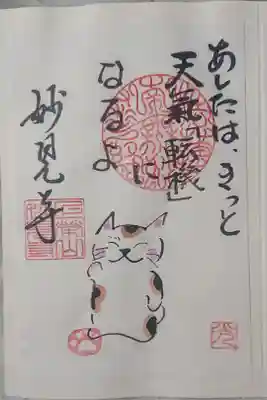 あしたは、きっと
天氣「転機」
に
なるよ
妙見寺